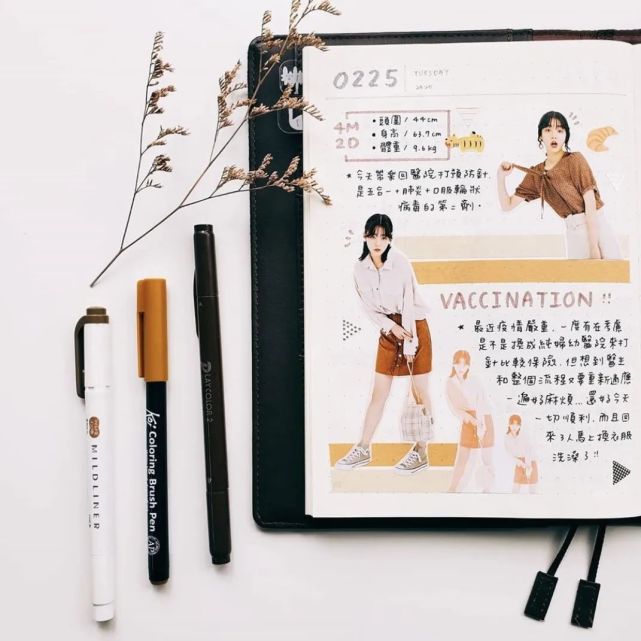 0225
TUESDAY
2020
4M
2D
• 頭圍 / 44cm
• 身高 / 63.7cm
• 體重 / 9.6kg
* 今天帶回醫院打預防針,
是五合一+肺炎+口服輪狀
病毒的第二劑。
VACCINATION !!
* 最近疫情嚴重, 一度有在考慮
是不是換成純婦幼醫院來打
針比較保險, 但想到醫生
和整個流程又要重新適應
一遍好麻煩...還好今天
一切順利, 而且回
來3人馬上換衣服
洗澡了!!
MILDLINER
Coloring Brush Pen
PLAYCOLOR 2